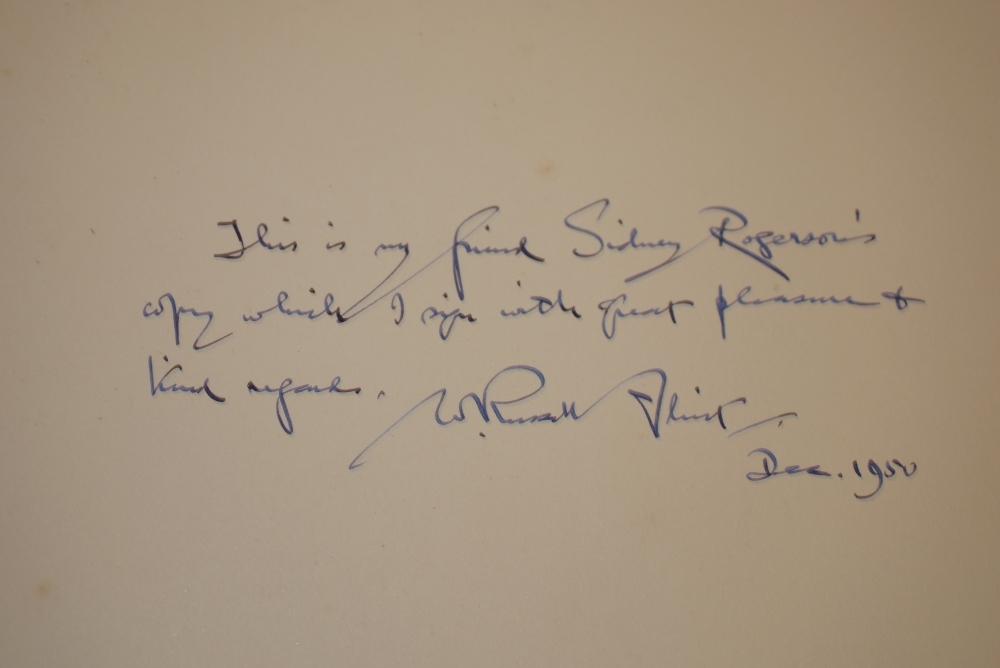 This is my friend Sidney Rogerson's
copy which I sign with great pleasure &
kind regards. W Russell Flint.
Dec. 1950